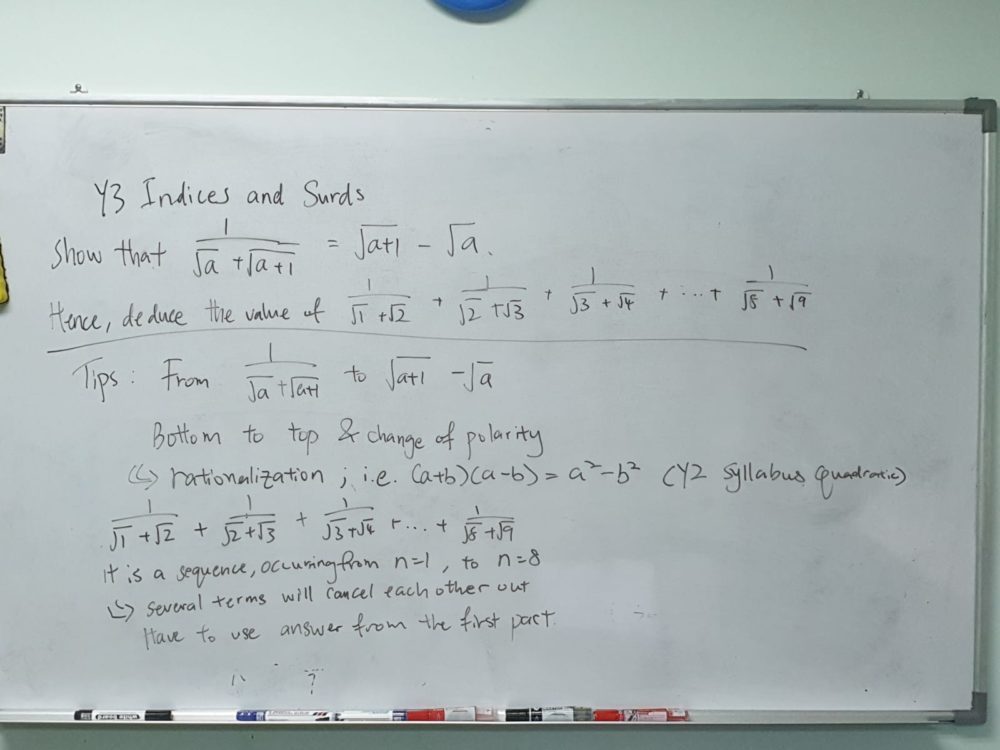 Y3 Indices and Surds
Show that 1/(√a + √(a+1)) = √(a+1) - √a.
Hence, deduce the value of 1/(√1 + √2) + 1/(√2 + √3) + 1/(√3 + √4) + ... + 1/(√8 + √9)
Tips: From 1/(√a + √(a+1)) to √(a+1) - √a
Bottom to top & change of polarity
↳ rationalization ; i.e. (a+b)(a-b) = a² - b² (Y2 syllabus quadratic)
1/(√1 + √2) + 1/(√2 + √3) + 1/(√3 + √4) + ... + 1/(√8 + √9)
it is a sequence, occuring from n=1, to n=8
↳ several terms will cancel each other out
Have to use answer from the first part.